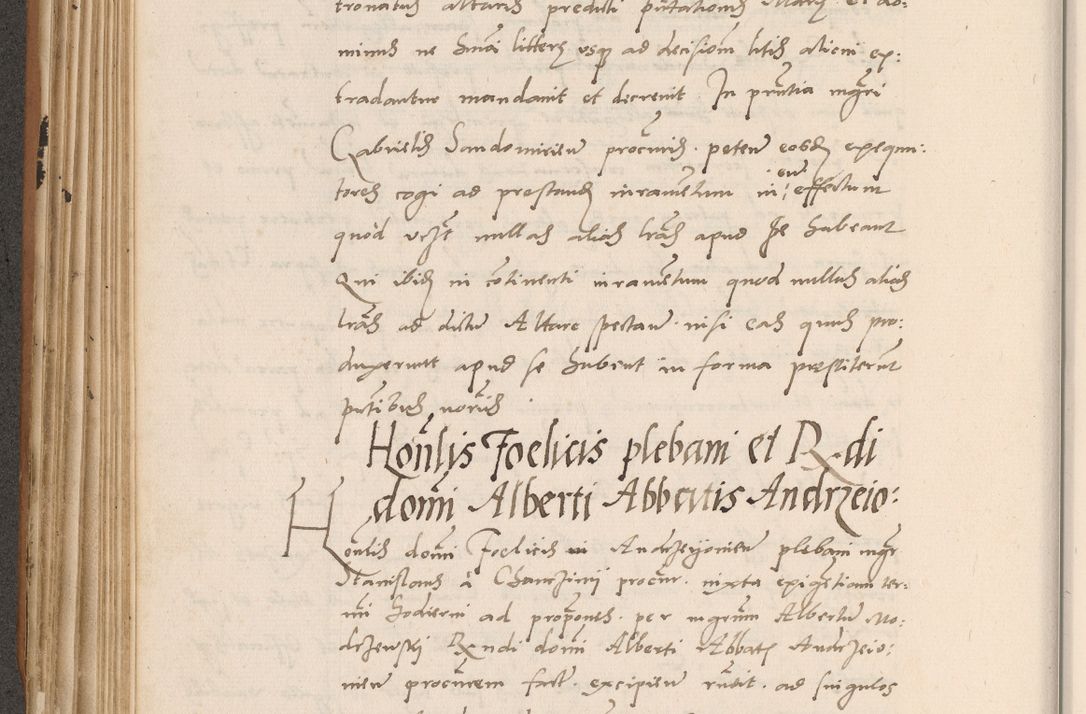 tronatus altaris predicti putationis
minus ne huiusmodi littere usque ad decisionem litis alieni ex:
tradantur mandavit et decrevit. In prntia mgri
Gabrielis Sandomirien procuris. peten eosdem exequu:
tores cogi ad prestand iuramentum in eum effectum
quod nullas alias lras apud se habeant
Qui ibidem in continenti iuramentum quod nullas alias
lras ad dictu Altare spectan. nisi eas quas pro:
duxerunt apud se habent in forma prestiterunt
pntibus
Honlis Foelicis plebani et R.di
domi Alberti Abbatis Andrzeio:
Honlis domi Foelicis in Andrzeyovien plebani mgr
Stanislaus à Chanczinij procur. iuxta exigentiam ter:
mi hodierni ad propones. per mgrum Albertu Mo:
drzewski R.ndi domi Alberti Abbatis Andrzeio:
vien procurem fact. excipien ad singulos